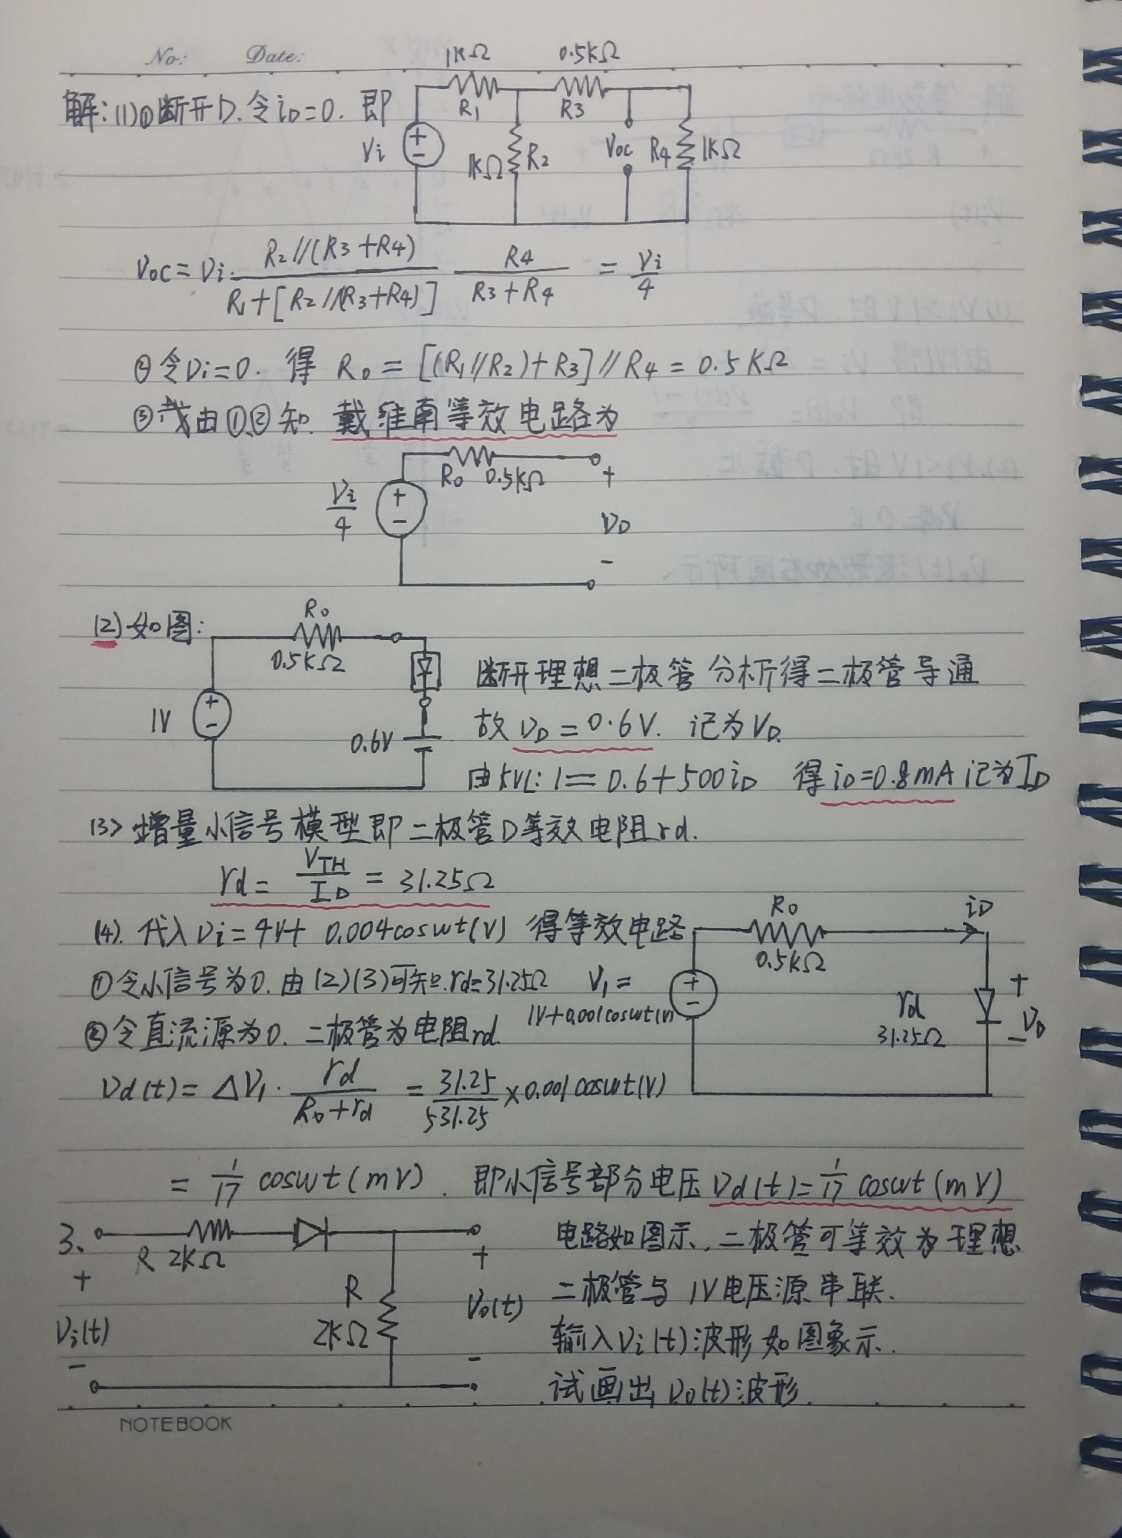 No: Date:
1KΩ 0.5KΩ
解:(1)①断开D.令iD=0. 即
R1 R3
Vi 1KΩ R2 Voc R4 1KΩ
Voc = Vi · R2//(R3+R4) / R1+[R2//(R3+R4)] · R4 / R3+R4 = Vi/4
②令Vi=0. 得 Ro = [(R1//R2)+R3]//R4 = 0.5KΩ
③ 由①,②知. 戴维南等效电路为
Ro 0.5KΩ
Vi/4 + − + VD −
(2)如图:
Ro
0.5KΩ
断开理想二极管 分析得二极管导通
1V 0.6V
故 VD = 0.6V. 记为VD.
由KVL: 1 = 0.6+500iD 得iD=0.8mA 记为ID
(3) 增量小信号模型即二极管D等效电阻rd.
rd = VTH/ID = 31.25Ω
(4). 代入Vi=4V+ 0.004coswt(V) 得等效电路
Ro iD
0.5KΩ
①令小信号为0.由(2)(3)可知.rd=31.25Ω V1 =
1V+0.001coswt(V)
rd
31.25Ω
+ VD −
②令直流源为0. 二极管为电阻rd.
Vd(t) = ΔV1 · rd / Ro+rd = 31.25/531.25 × 0.001coswt(V)
= 1/17 coswt(mV). 即小信号部分电压Vd(t)=1/17 coswt(mV)
3、
R 2KΩ
+ Vi(t) −
R
2KΩ
+ Vo(t) −
电路如图示,二极管可等效为理想
二极管与 1V电压源串联.
输入Vi(t)波形如图象示.
试画出Vo(t)波形.
NOTEBOOK